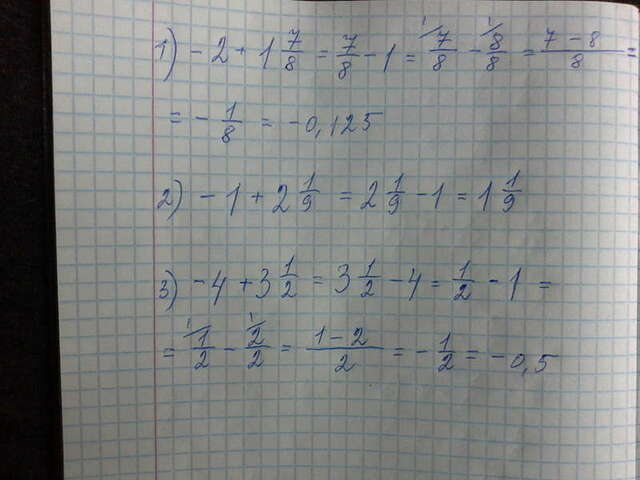 1) - 2 + 1 7/8 = 7/8 - 1 = 1/ 7/8 - 1/ 8/8 = 7 - 8/8 =
= - 1/8 = - 0,125
2) - 1 + 2 1/9 = 2 1/9 - 1 = 1 1/9
3) - 4 + 3 1/2 = 3 1/2 - 4 = 1/2 - 1 =
= 1/ 1/2 - 1/ 2/2 = 1 - 2/2 = - 1/2 = - 0,5